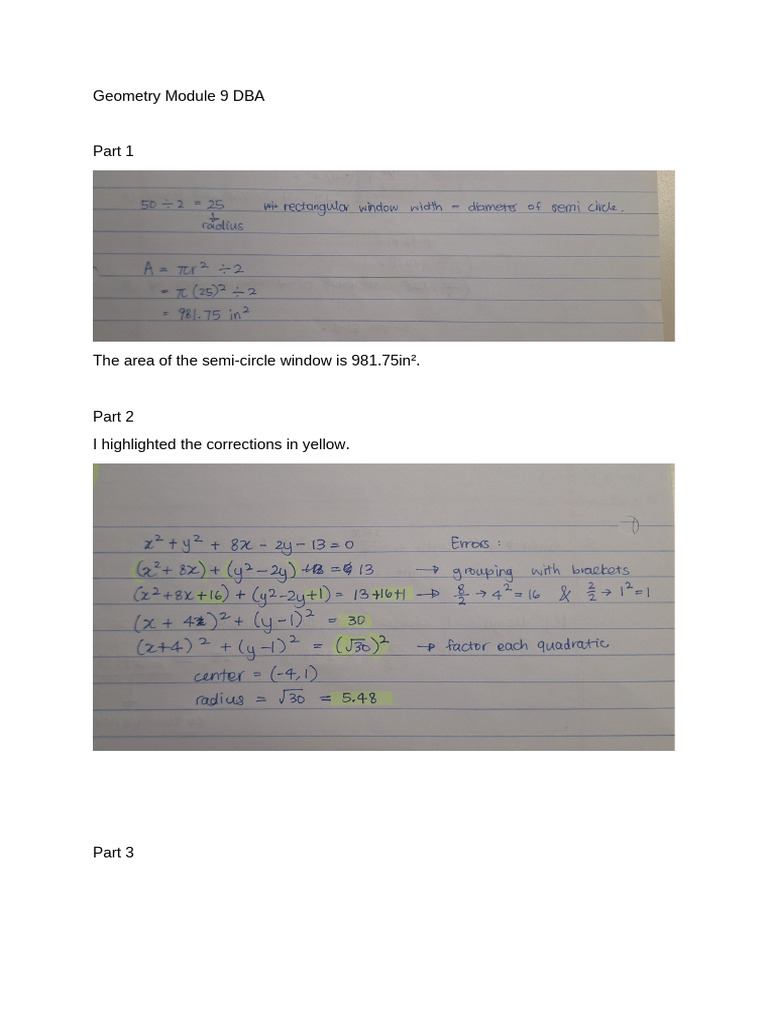 Geometry Module 9 DBA
Part 1
50 ÷ 2 = 25 rectangular window width = diameter of semi circle.
radius
A = πr² ÷ 2
= π (25)² ÷ 2
= 981.75 in²
The area of the semi-circle window is 981.75in².
Part 2
I highlighted the corrections in yellow.
x² + y² + 8x - 2y - 13 = 0 Errors :
(x² + 8x) + (y² - 2y) = 13 → grouping with brackets
(x² + 8x + 16) + (y² - 2y + 1) = 13 + 16 + 1 → 8/2 → 4² = 16 & 2/2 → 1² = 1
(x + 4)² + (y - 1)² = 30
(x + 4)² + (y - 1)² = (√30)² → factor each quadratic
center = (-4, 1)
radius = √30 = 5.48
Part 3